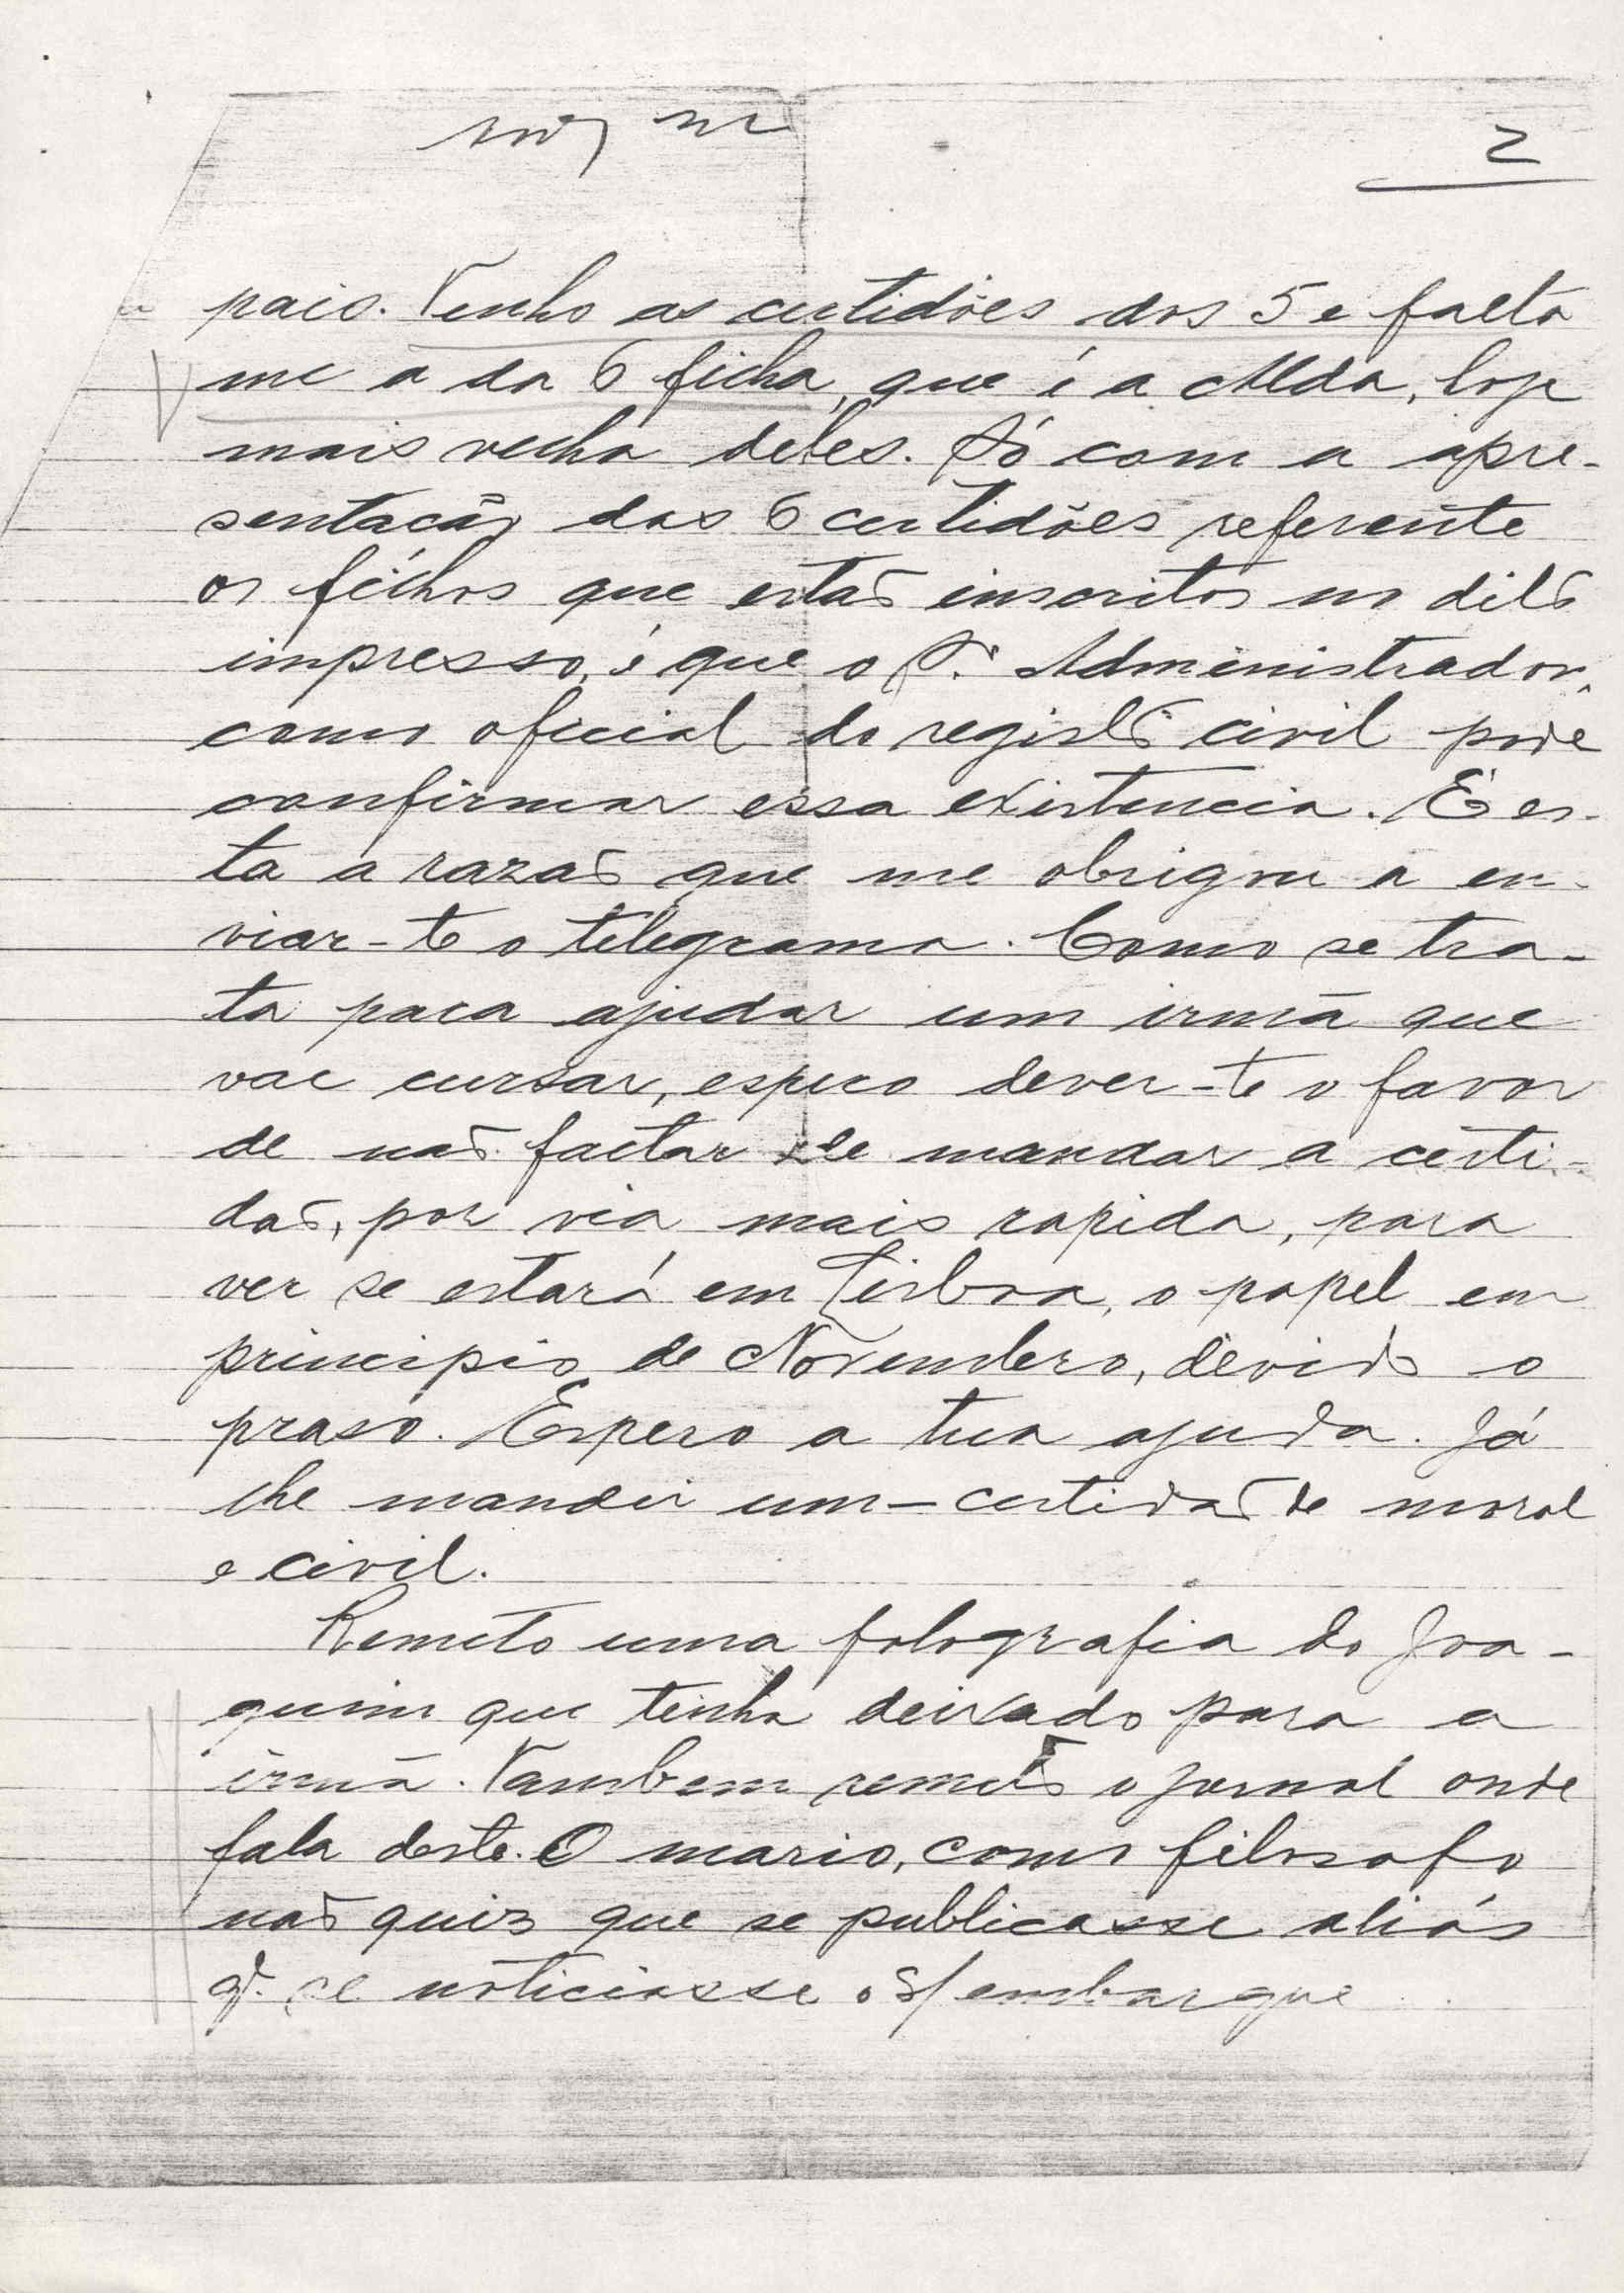 2
pais. Tenho as certidões dos 5 e falta
me a da 6 ficha, que é a Alda, hoje
mais velha deles. Só com a apre-
sentacão das 6 certidões referente
os fichos que estão inscritos no dito
impresso, é que o Sr. Administrador,
como oficial do registo civil pode
confirmar essa existencia. É es-
ta a razão que me obrigou a en-
viar-te o telegrama. Como se tra-
ta para ajudar um irmã que
vae cursar, espero dever-te o favor
de não faltar de mandar a certi-
dão, por via mais rapida, para
ver se estará em Lisboa, o papel em
principio de Novembro, devido o
praso. Espero a tua ajuda. Já
lhe mandei um-certidão de moral
e civil.
Remeto uma fotografia do Joa-
quim que tenha deixado para a
irmã. Tambem remeto o jornal onde
fala deste. O mario, como filosofo
não quiz que se publicasse aliás
q. se noticiasse o s/ embarque